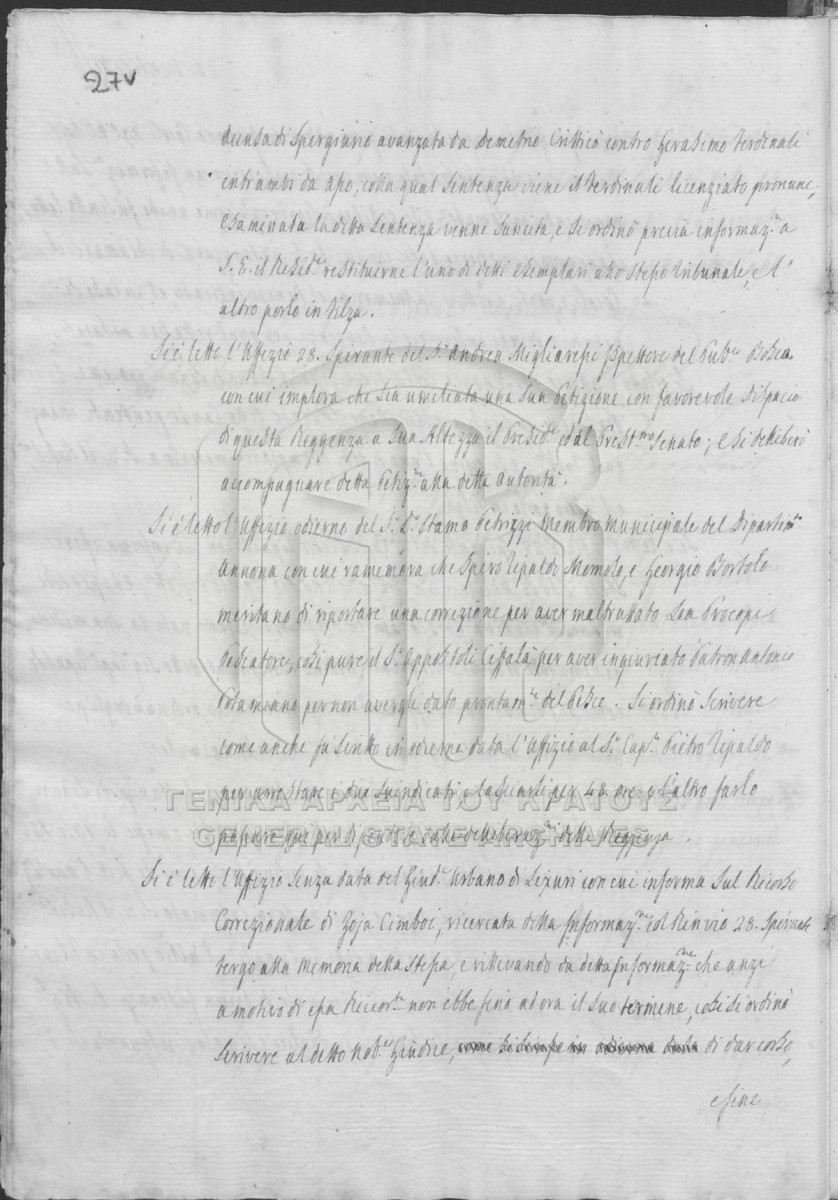 27v
di Spergiuro avanzata da Demetrio Crittico contro Gerasimo Verdinali
entrambi da Aso, colla qual Sentenza viene il Verdinali licenziato
esaminata la detta Sentenza venne Sancita, e si ordinò previa informaz.ne a
S. E. il Resid.e restituirne l'uno di detti esemplari allo stesso Tribunale, e l'
altro porlo in Filza.
Si è letto l'Uffizio 28. Spirante del S.r Andrea Migliaressi Ispettore del Pub.co
con cui implora che sia umiliata una sua Petizione con favorevole Dispaccio
di questa Reggenza a Sua Altezza il Presid.e ed al Prest.mo Senato; e si deliberò
accompagnare detta Petiz.ne alla detta Autorità.
Si è letto l'Uffizio odierno del S.r D.r Stamo Petrizzi Membro Municipale del Dipartim.to
Annona con cui ramemora che Spiro Tipaldo Momolo, e Georgio Bortolo
meritano di riportare una correzione per aver maltrattato Procopi
Pescatore, così pure il S.r Appostoli Ceffalà per aver ingiuriato Patron Antonio
Potamiano per non avergli dato prontam.te del Pesce. Si ordinò Scrivere
come anche fù Scritto in odierna data l'Uffizio al S.r Cap.n Pietro Tipaldo
per arrestare i due suindicati e lasciarli per 48. ore e l'altro farlo
deliberaz.ni della Reggenza.
ΓΕΝΙΚΑ ΑΡΧΕΙΑ ΤΟΥ ΚΡΑΤΟΥΣ
GENERAL STATE ARCHIVES
Si è letto l'Uffizio senza data del Giud.e Urbano di Lixuri con cui informa sul Ricorso
Correzionale di Zoja Cimboi, ricercata della Informaz.ne col Rinvio 28. Spirante
tergo alla Memoria della stessa, e rillevando da detta Informaz.ne che anzi
a motivo di essa Riccor.te non ebbe fino ad ora il suo termine, così si ordinò
Scrivere al detto Nob.e Giudice, come si scrisse in odierna data di dar corso,
e fine